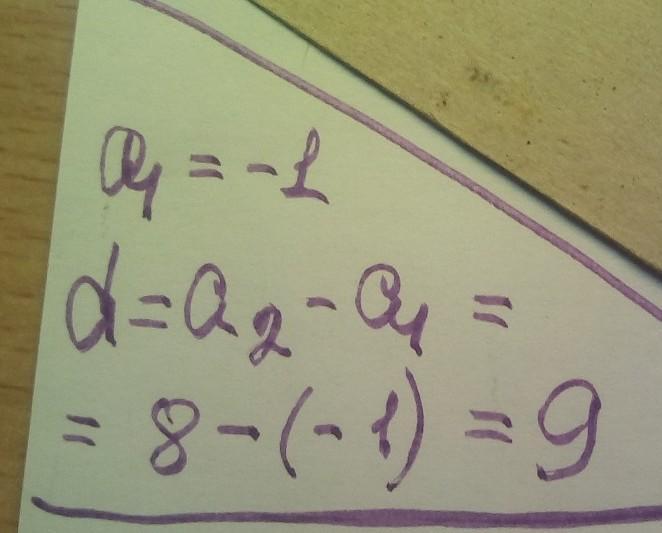 a₁ = -1
d = a₂ - a₁ =
= 8 - (-1) = 9